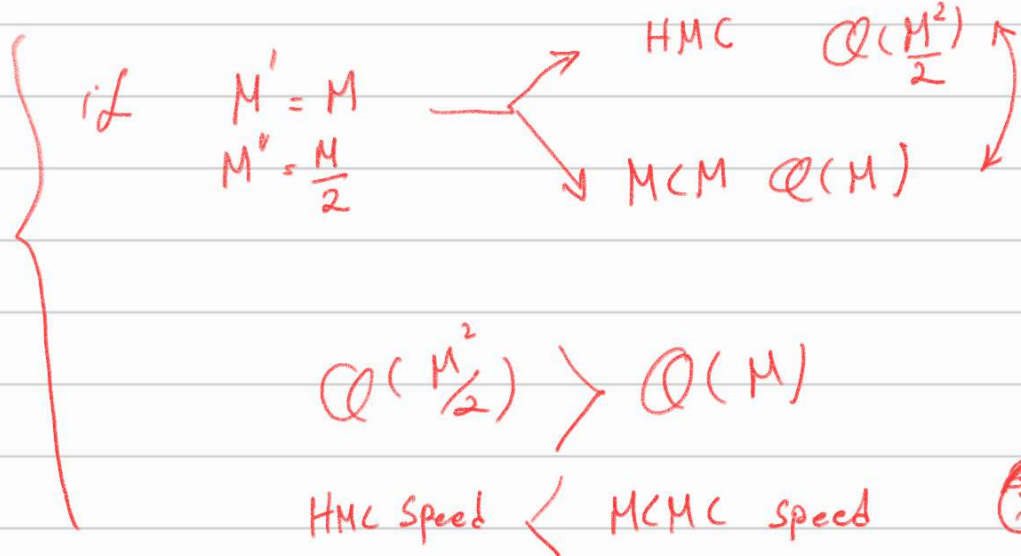 if M' = M HMC O(M²/2)
M'' = M/2 MCM O(M)
O(M²/2) > O(M)
HMC Speed < MCMC speed